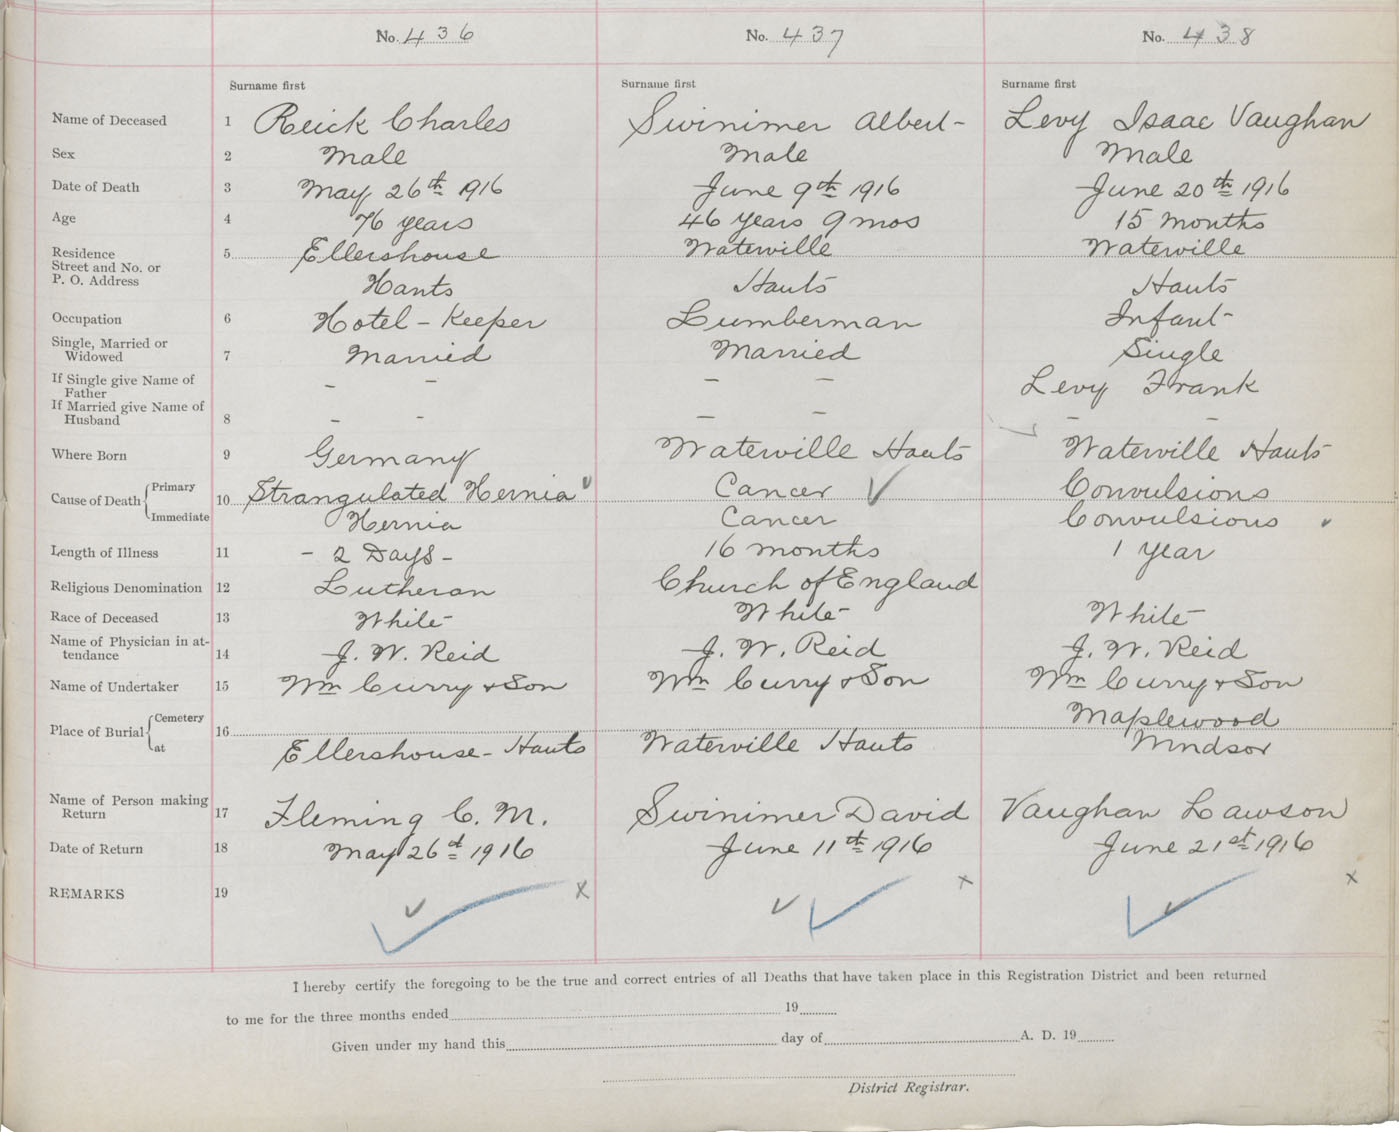 No. 436 No. 437 No. 438
Surname first Surname first Surname first
Name of Deceased 1 Reick Charles Swinimer Albert- Levy Isaac Vaughan
Sex 2 Male Male Male
Date of Death 3 May 26th 1916 June 9th 1916 June 20th 1916
Age 4 76 years 46 years 9 mos 15 months
Residence 5 Ellershouse Waterville Waterville
Street and No. or
P. O. Address Hants Hants Hants
Occupation 6 Hotel-Keeper Lumberman Infant-
Single, Married or
Widowed 7 Married Married Single
If Single give Name of
Father - - - - Levy Frank
If Married give Name of
Husband 8 - - - - - -
Where Born 9 Germany Waterville Hants Waterville Hants
Cause of Death Primary 10 Strangulated Hernia Cancer Convulsions
Immediate Hernia Cancer Convulsions
Length of Illness 11 - 2 Days - 16 months 1 year
Religious Denomination 12 Lutheran Church of England
Race of Deceased 13 White- White- White-
Name of Physician in at-
tendance 14 J. W. Reid J. W. Reid J. W. Reid
Name of Undertaker 15 Wm Curry + Son Wm Curry + Son Wm Curry + Son
Place of Burial Cemetery 16 Maplewood
at Ellershouse- Hants Waterville Hants Windsor
Name of Person making
Return 17 Fleming C. M. Swinimer David Vaughan Lawson
Date of Return 18 May 26th 1916 June 11th 1916 June 21st 1916
REMARKS 19 x x x
I hereby certify the foregoing to be the true and correct entries of all Deaths that have taken place in this Registration District and been returned
to me for the three months ended 19
Given under my hand this day of A. D. 19
District Registrar.